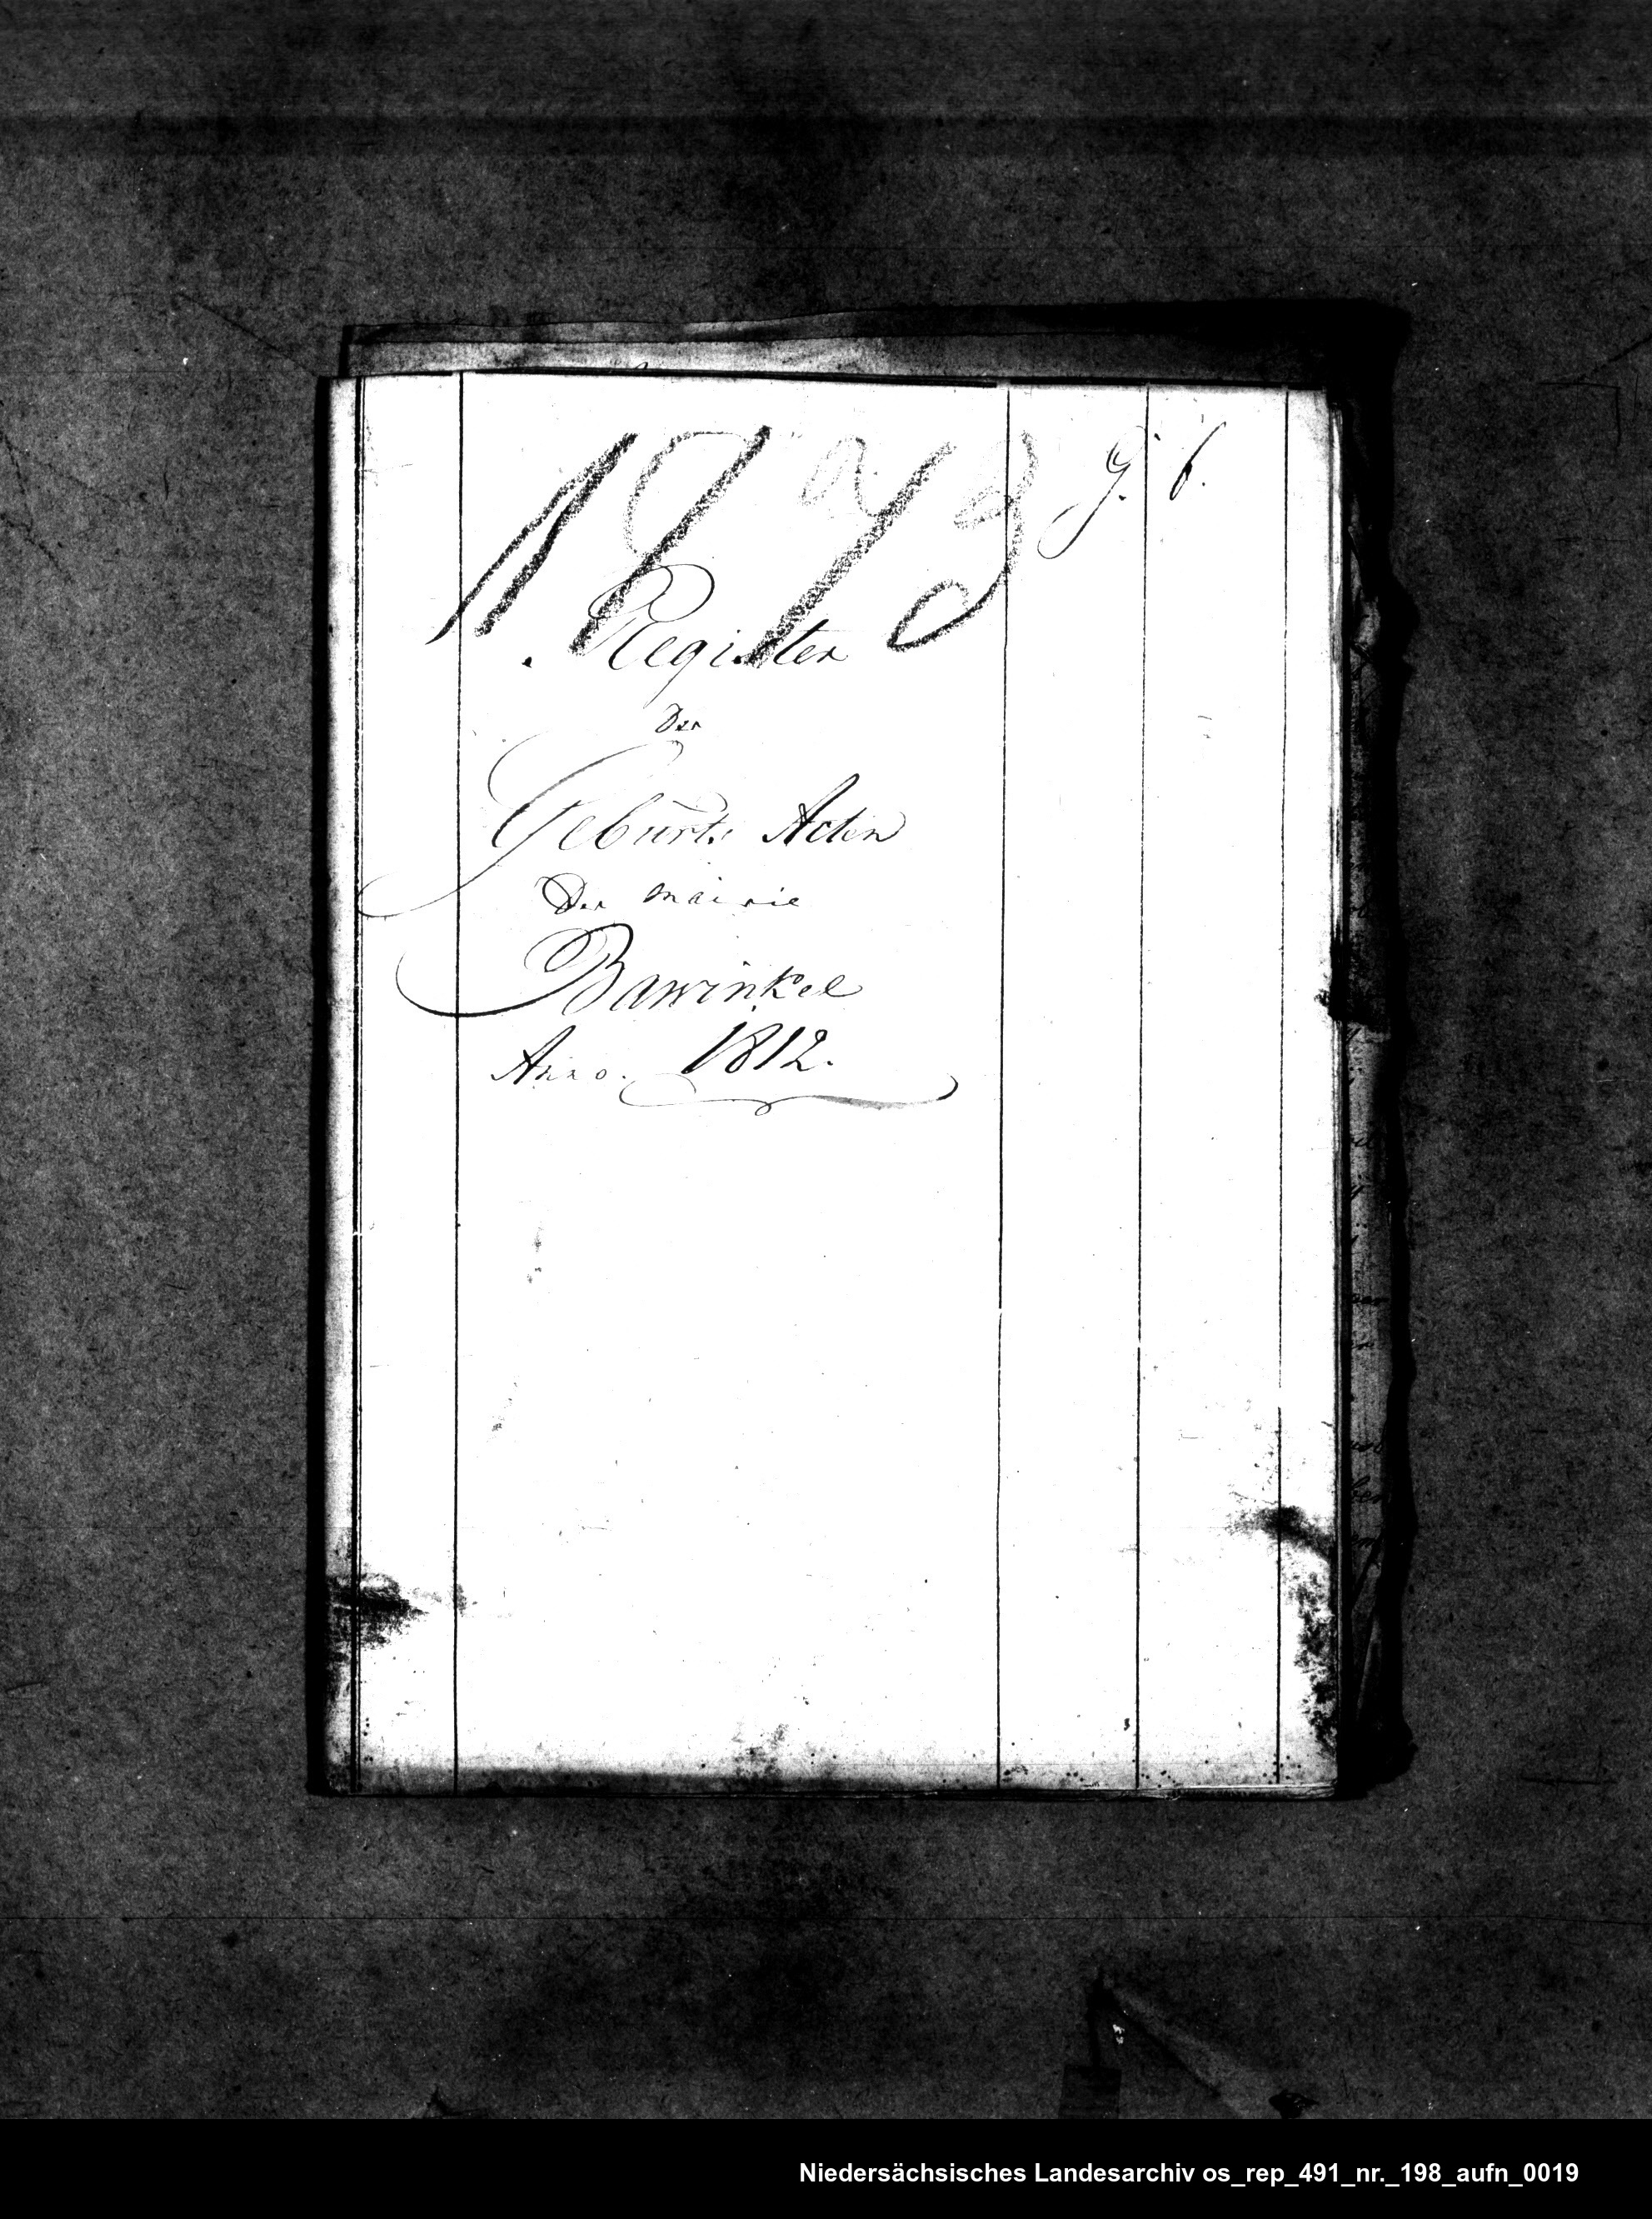 g. b.
Register
Der
Geburts Acten
Der Mairie
Bawinkel
Anno. 1812.
Niedersächsisches Landesarchiv os_rep_491_nr._198_aufn_0019